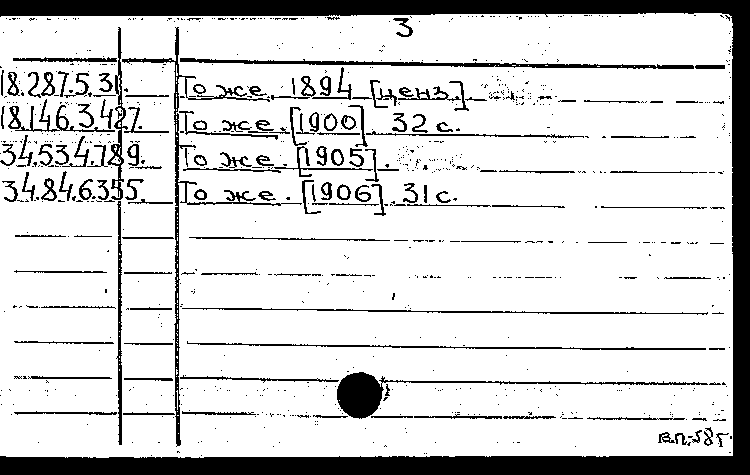 3
18.287.5.31. То же. 1894 [ценз].
18.146.3.427. То же. [1900]. 32 с.
34.53.4.789. То же. [1905].
34.84.6.355. То же. [1906]. 31 с.